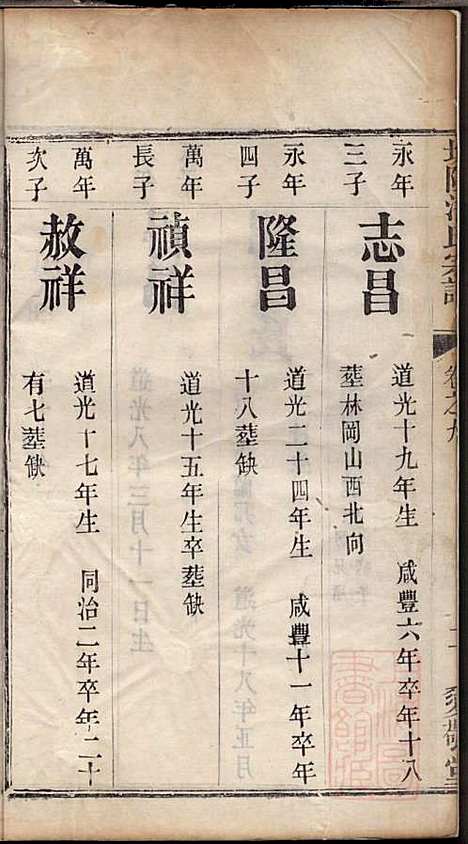 永年
三子
志昌
道光十九年生 咸豐六年卒年十八
塟林岡山西北向
永年
四子
隆昌
道光二十四年生 咸豐十一年卒年
十八塟缺
萬年
長子
禎祥
道光十五年生卒塟缺
萬年
次子
赦祥
道光十七年生 同治二年卒年二十
有七塟缺
卷之九